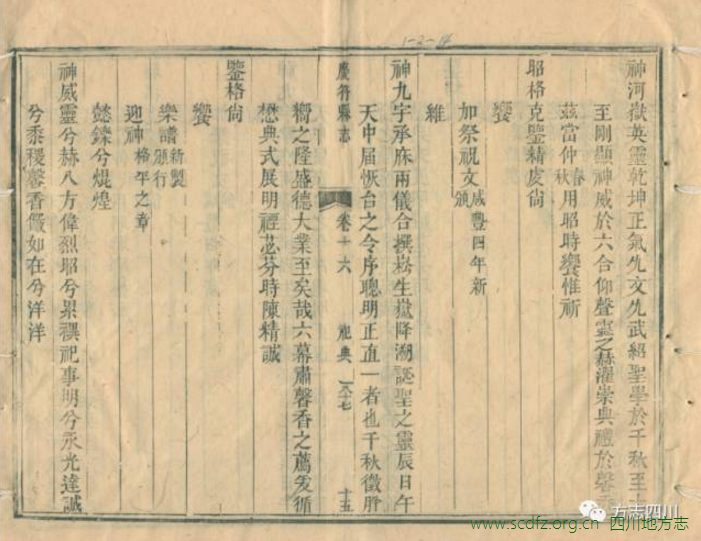 1-2-14
神河嶽英靈乾坤正氣允文允武紹聖學於千秋至大
至剛顯神威於六合仰聲靈之赫濯崇典禮於馨
茲當仲春秋用昭時饗惟祈
昭格克鑒精虔尙
饗
加祭祝文咸豐四年新頒
維
神九宇承庥兩儀合撰崧生嶽降溯誕聖之靈辰日午
天中屆恢台之令序聰明正直一者也千秋徵肸
慶符縣志
卷十六
祀典
十五
嚮之隆盛德大業至矣哉六幕肅馨香之薦爰循
懋典式展明禋苾芬時陳精誠
鑒格尙
饗
樂譜新製頒行
迎神格平之章
懿鑠兮焜煌
神威靈兮赫八方偉烈昭兮累禩祀事明兮永光達誠
兮黍稷馨香儼如在兮洋洋
方志四川
www.scdfz.org.cn 四川地方志